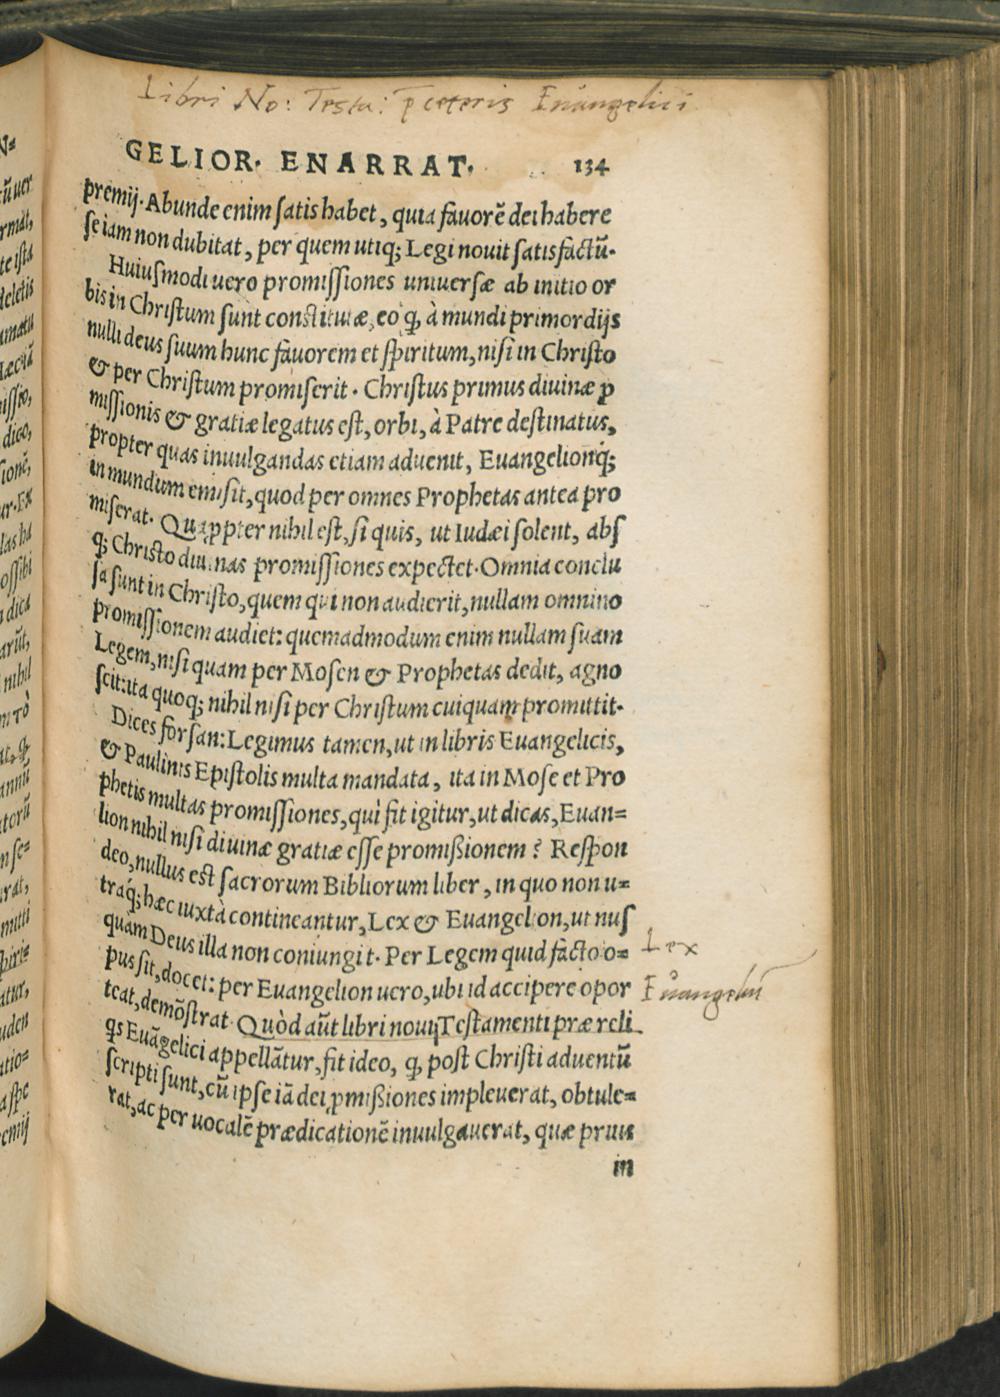 Libri No: Testa: p ceteris Euangelici
GELIOR. ENARRAT. 134
premij. Abunde enim satis habet, quia fauorē dei habere
se iam non dubitat, per quem utiq; Legi nouit satisfactū.
Huiusmodi uero promissiones uniuersæ ab initio or
bis in Christum sunt constitutæ, eò q, à mundi primordijs
nulli deus suum hunc fauorem et spiritum, nisi in Christo
& per Christum promiserit. Christus primus diuinæ p
missionis & gratiæ legatus est, orbi, à Patre destinatus,
propter quas inuulgandas etiam aduenit, Euangelionq́;
in mundum emisit, quod per omnes Prophetas antea pro
miserat. Quappter nihil est, si quis, ut Iudæi solent, abs
q; Christo diuinas promissiones expectet. Omnia conclu
sa sunt in Christo, quem qui non audierit, nullam omnino
promissionem audiet: quemadmodum enim nullam suam
Legem, nisi quam per Mosen & Prophetas dedit, agno
scit: ita quoq; nihil nisi per Christum cuiquam promittit.
Dices forsan: Legimus tamen, ut in libris Euangelicis,
& Paulinis Epistolis multa mandata, ita in Mose et Pro
phetis multas promissiones, quì fit igitur, ut dicas, Euan=
lion nihil nisi diuinæ gratiæ esse promißionem? Respon
deo, nullus est sacrorum Bibliorum liber, in quo non u=
traq́; hæc iuxtà contineantur, Lex & Euangelion, ut nus
quàm Deus illa non coniungit. Per Legem quid facto o=
Lex
pus sit, docet: per Euangelion uero, ubi id accipere opor
Euangeliū
teat, demōstrat. Quòd aūt libri noui Testamenti præ reli
qs Euāgelici appellātur, fit ideo, q, post Christi aduentū
scripti sunt, cū ipse iā dei pmißiones impleuerat, obtule=
rat, ac per uocalē prædicationē inuulgauerat, quæ prius
in